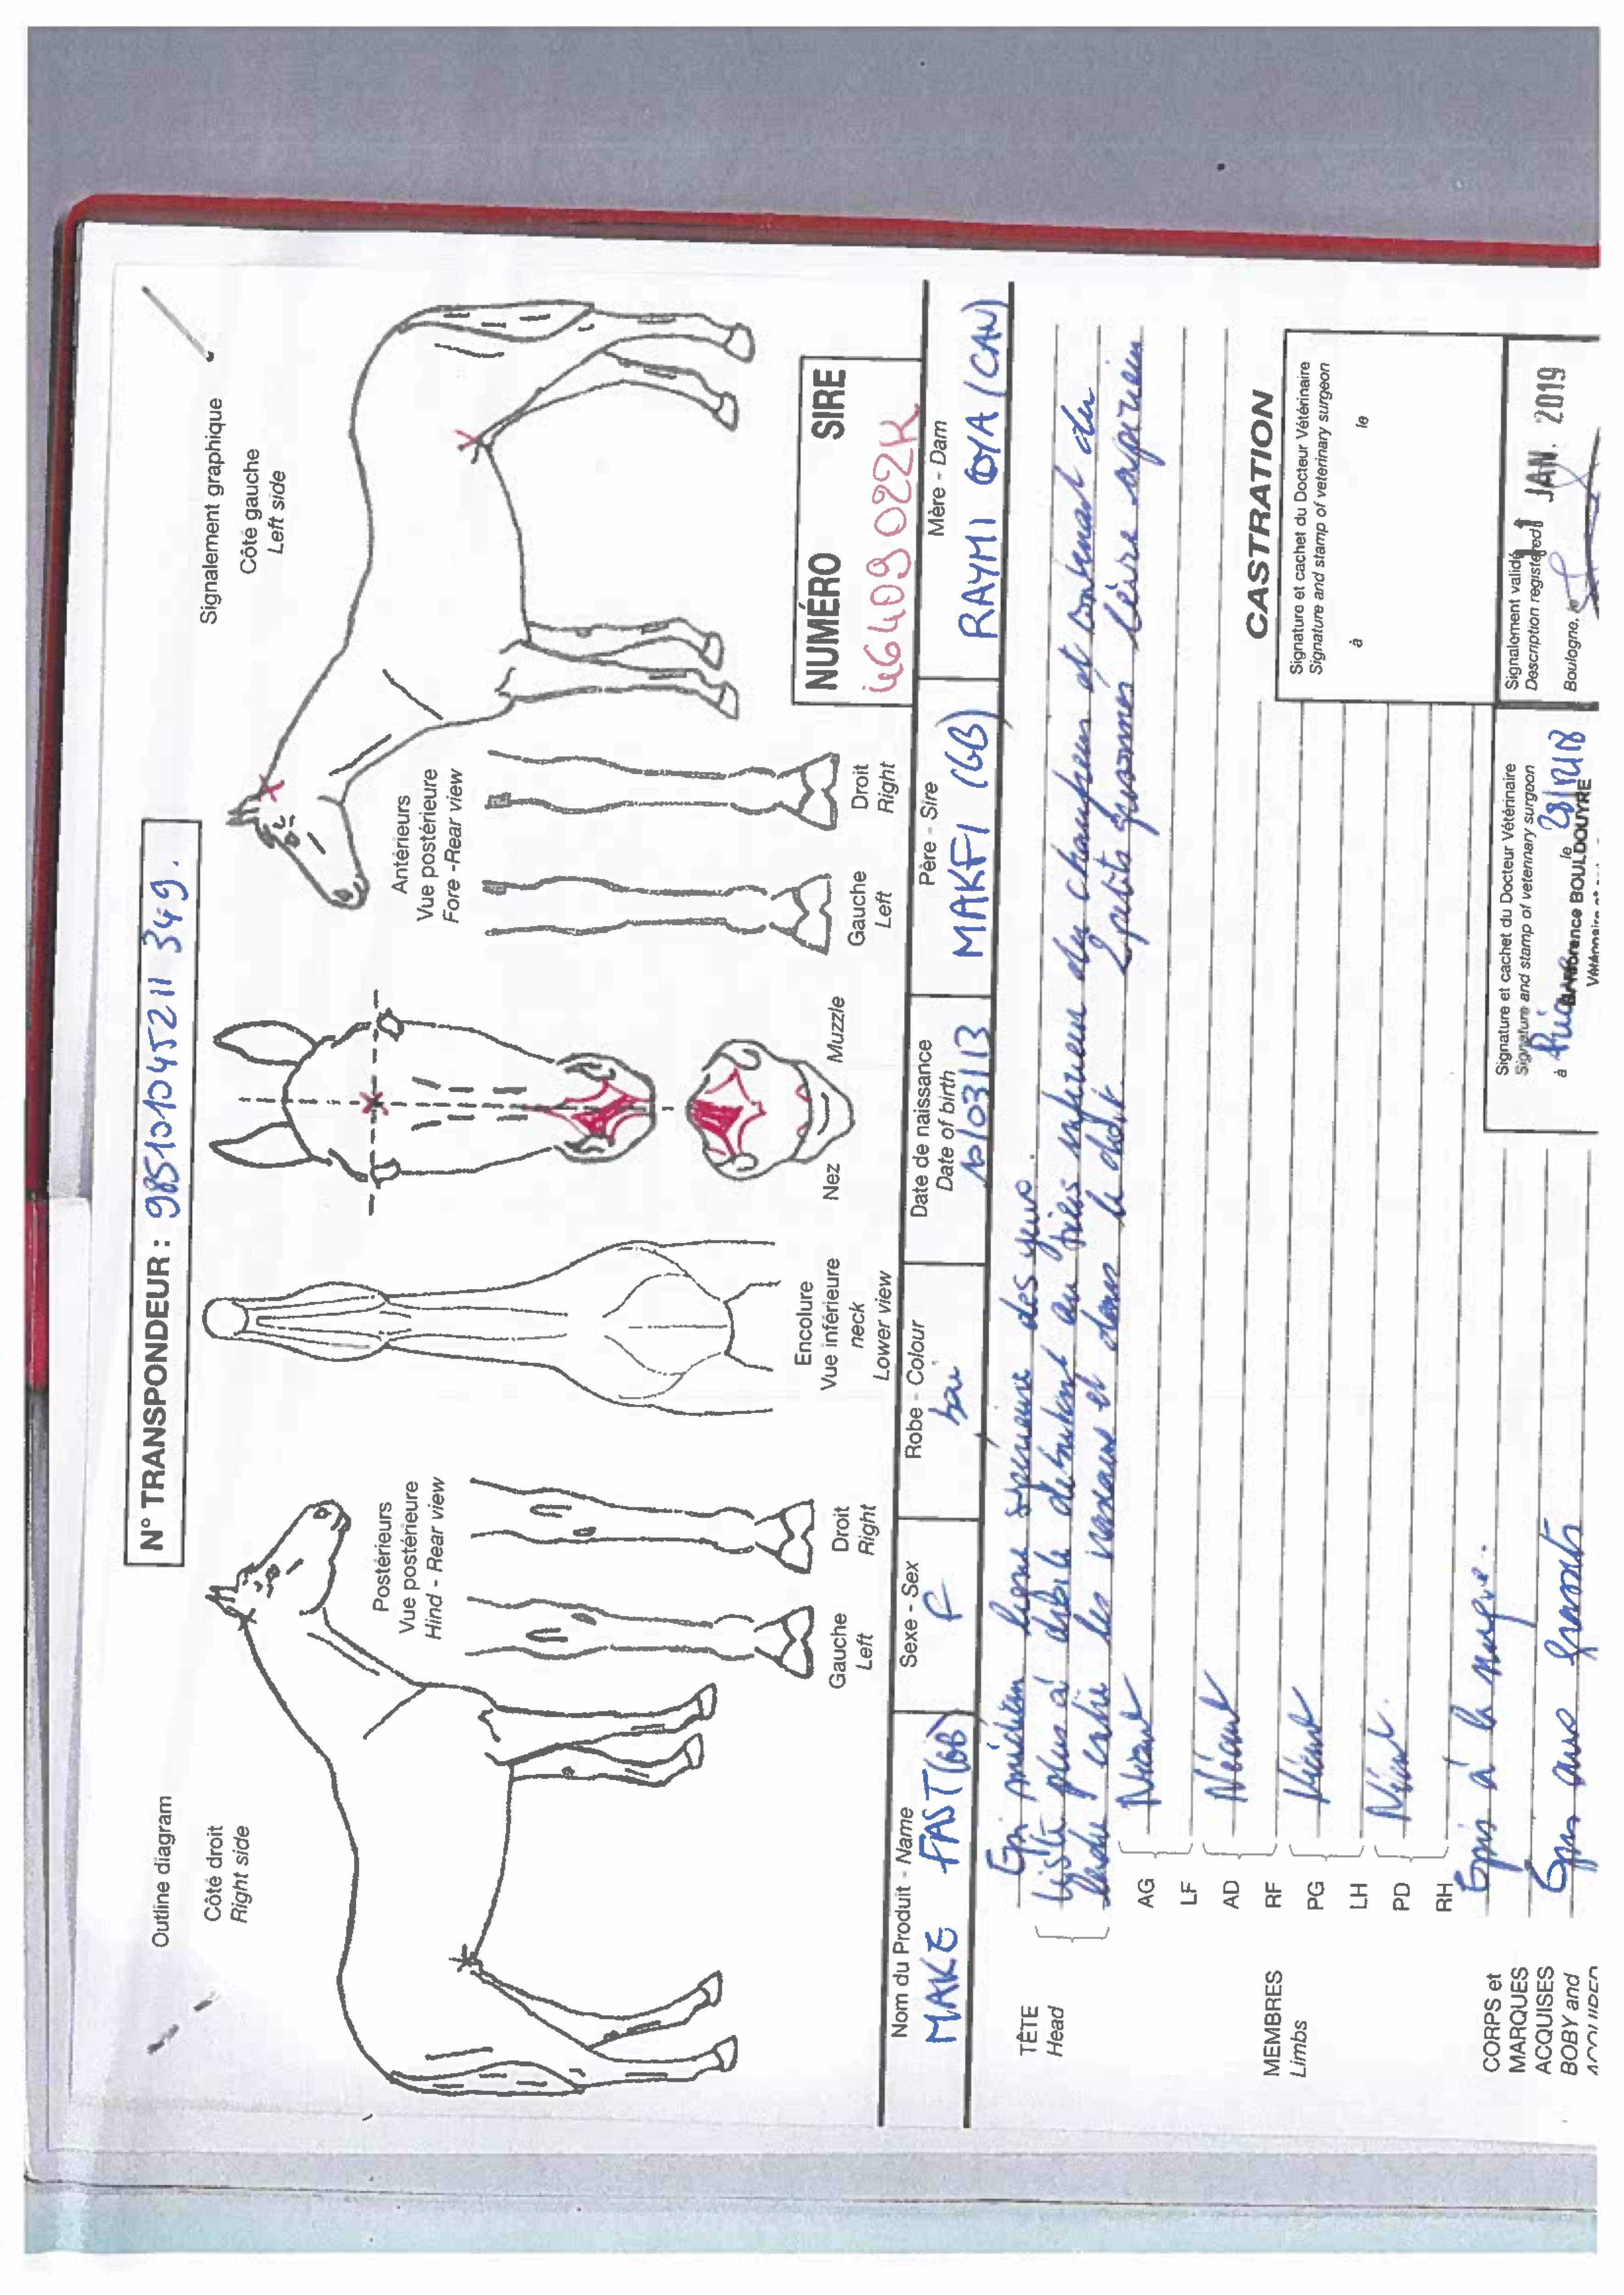 N° TRANSPONDEUR : 985101045211 349.
Outline diagram
Signalement graphique
Côté droit
Right side
Côté gauche
Left side
Postérieurs
Vue postérieure
Hind - Rear view
Antérieurs
Vue postérieure
Fore - Rear view
Gauche
Left
Droit
Right
Encolure
Vue inférieure
neck
Lower view
Nez
Muzzle
Gauche
Left
Droit
Right
NUMÉRO SIRE
46409022K
Nom du Produit - Name
MAKE FAST (GB)
Sexe - Sex
F
Robe - Colour
bai
Date de naissance
Date of birth
10/03/13
Père - Sire
MAKFI (GB)
Mère - Dam
RAYMI COYA (CAN)
TÊTE
Head
Epi médian ligne supérieure des yeux.
Liste plus à droite débutant au tiers inférieur du chanfrein et bordant du
ladre entre les naseaux et dans le droit. 2 petits grisonnés lèvre supérieure
MEMBRES
Limbs
AG
LF
Néant
AD
RF
Néant
PG
LH
Néant
PD
RH
Néant.
CORPS et
MARQUES
ACQUISES
BOBY and
ACQUIRED
Epis à la nuque.
Epis aux grassets
CASTRATION
Signature et cachet du Docteur Vétérinaire
Signature and stamp of veterinary surgeon
à le
Signature et cachet du Docteur Vétérinaire
Signature and stamp of veterinary surgeon
à le 28/12/18
Florence BOULDOUYRE
Vétérinaire
Signalement validé
Description registered
Boulogne, le
JAN. 2019